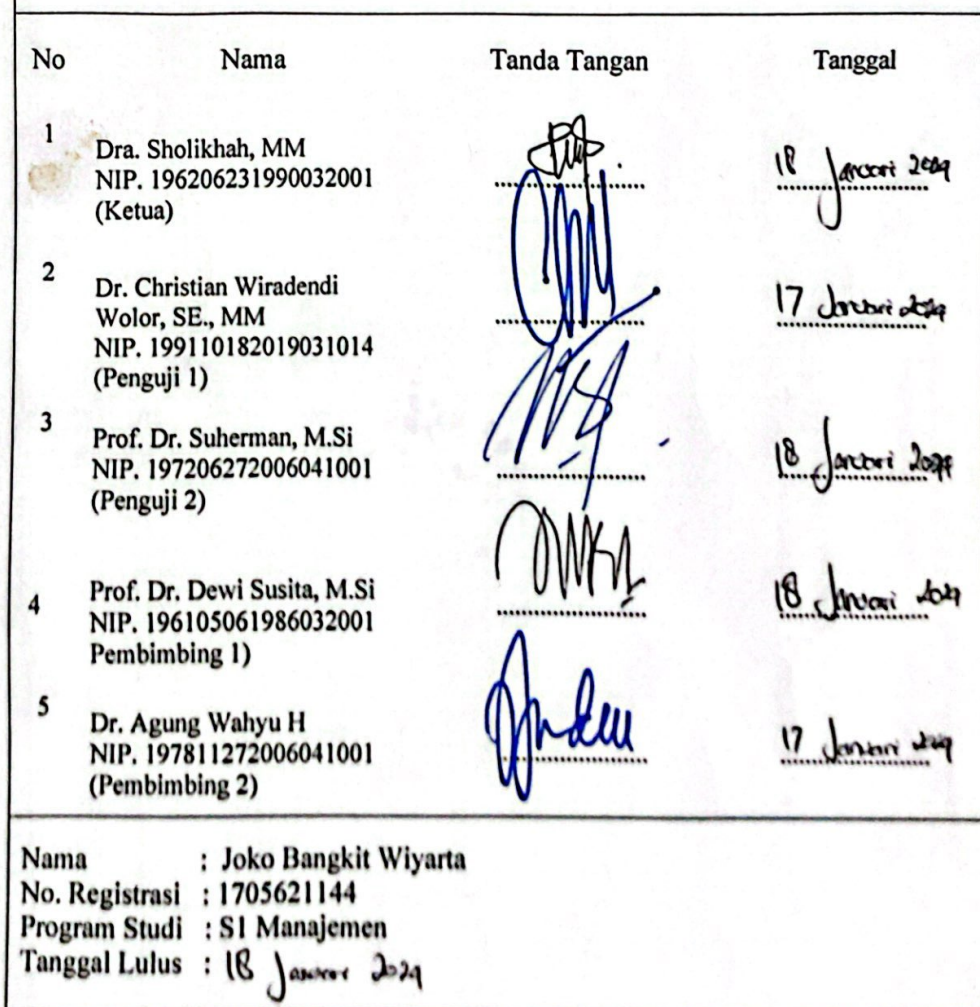 No Nama Tanda Tangan Tanggal
1
Dra. Sholikhah, MM
NIP. 196206231990032001
(Ketua)
18 Januari 2024
2
Dr. Christian Wiradendi
Wolor, SE., MM
NIP. 199110182019031014
(Penguji 1)
17 Januari 2024
3
Prof. Dr. Suherman, M.Si
NIP. 197206272006041001
(Penguji 2)
18 Januari 2024
4
Prof. Dr. Dewi Susita, M.Si
NIP. 196105061986032001
Pembimbing 1)
18 Januari 2024
5
Dr. Agung Wahyu H
NIP. 197811272006041001
(Pembimbing 2)
17 Januari 2024
Nama : Joko Bangkit Wiyarta
No. Registrasi : 1705621144
Program Studi : S1 Manajemen
Tanggal Lulus : 18 Januari 2024